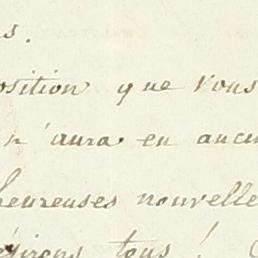 s.
osition que vous
n'aura en aucu
heureuses nouvelle
ésirons tous !